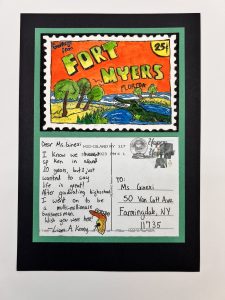 Greetings from
25¢
FORT
MYERS
FLORIDA
Dear Ms. Ginexi
MID-ISLAND NY 117
I know we
spoken in about
10 years, but I just
wanted to say
life is great!
After graduating highschool
I went on to be
a multi-millionaire
business man.
Wish you were here!
-Liam A. Kenny
TO:
Ms Ginexi
50 Van Cott Ave
Farmingdale, NY
11735